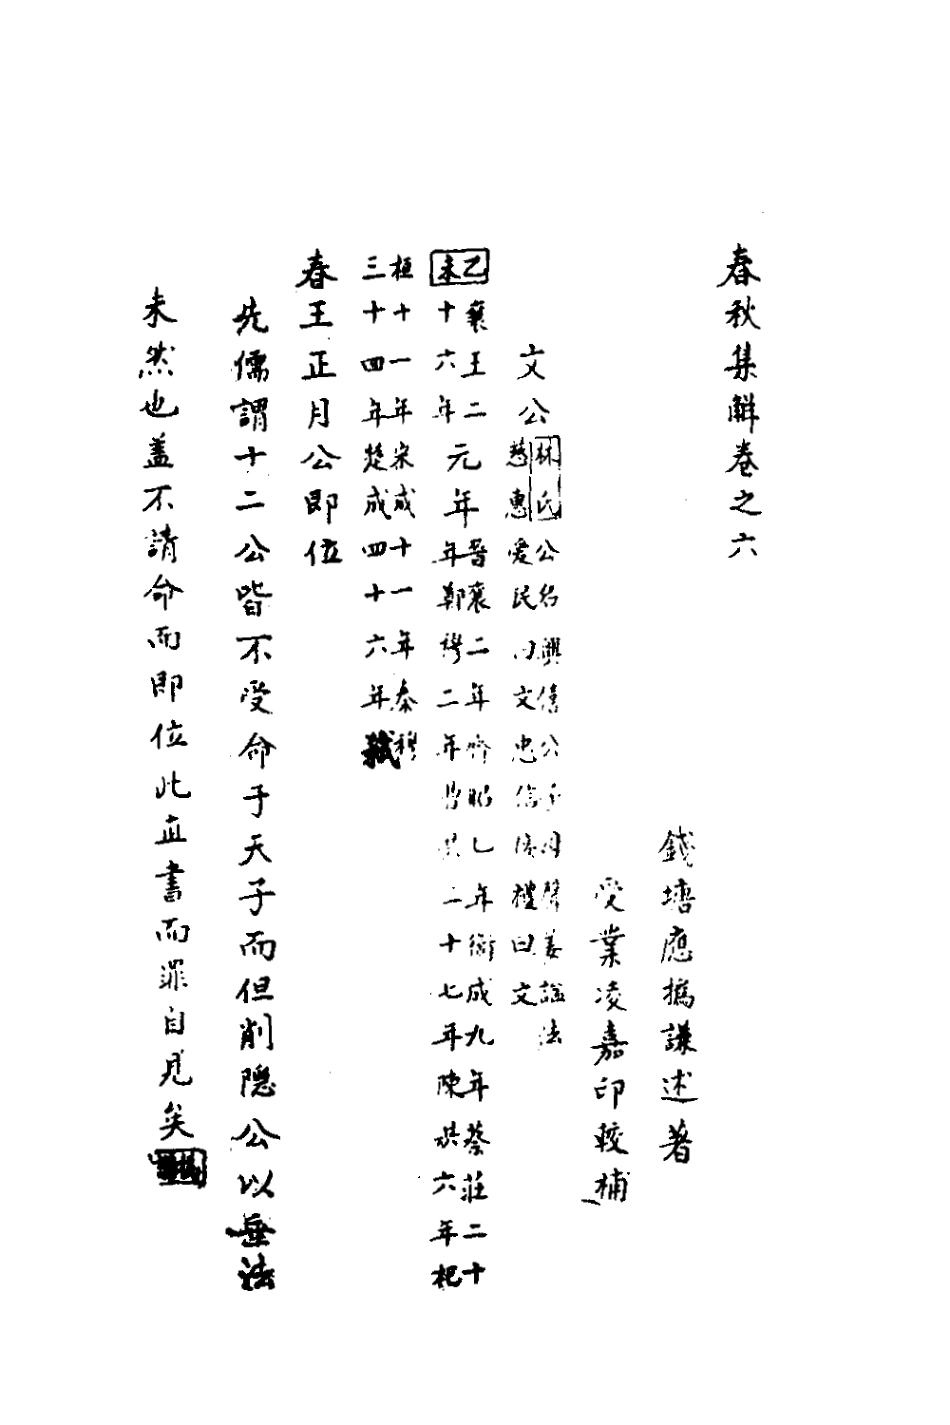 春秋集解卷之六
錢塘應撝謙述著
受業凌嘉印較補
文公林氏公名興僖公子母聲姜諡法
慈惠愛民曰文忠信接禮曰文
乙未襄王二十六年元年晉襄二年齊昭七年衛成九年蔡莊二十
年鄭穆二年曹共二十七年陳共六年杞
桓十一年宋成十一年秦穆
三十四年楚成四十六年
春王正月公即位
先儒謂十二公皆不受命于天子而但削隱公以垂法
未然也蓋不請命而即位此直書而罪自見矣